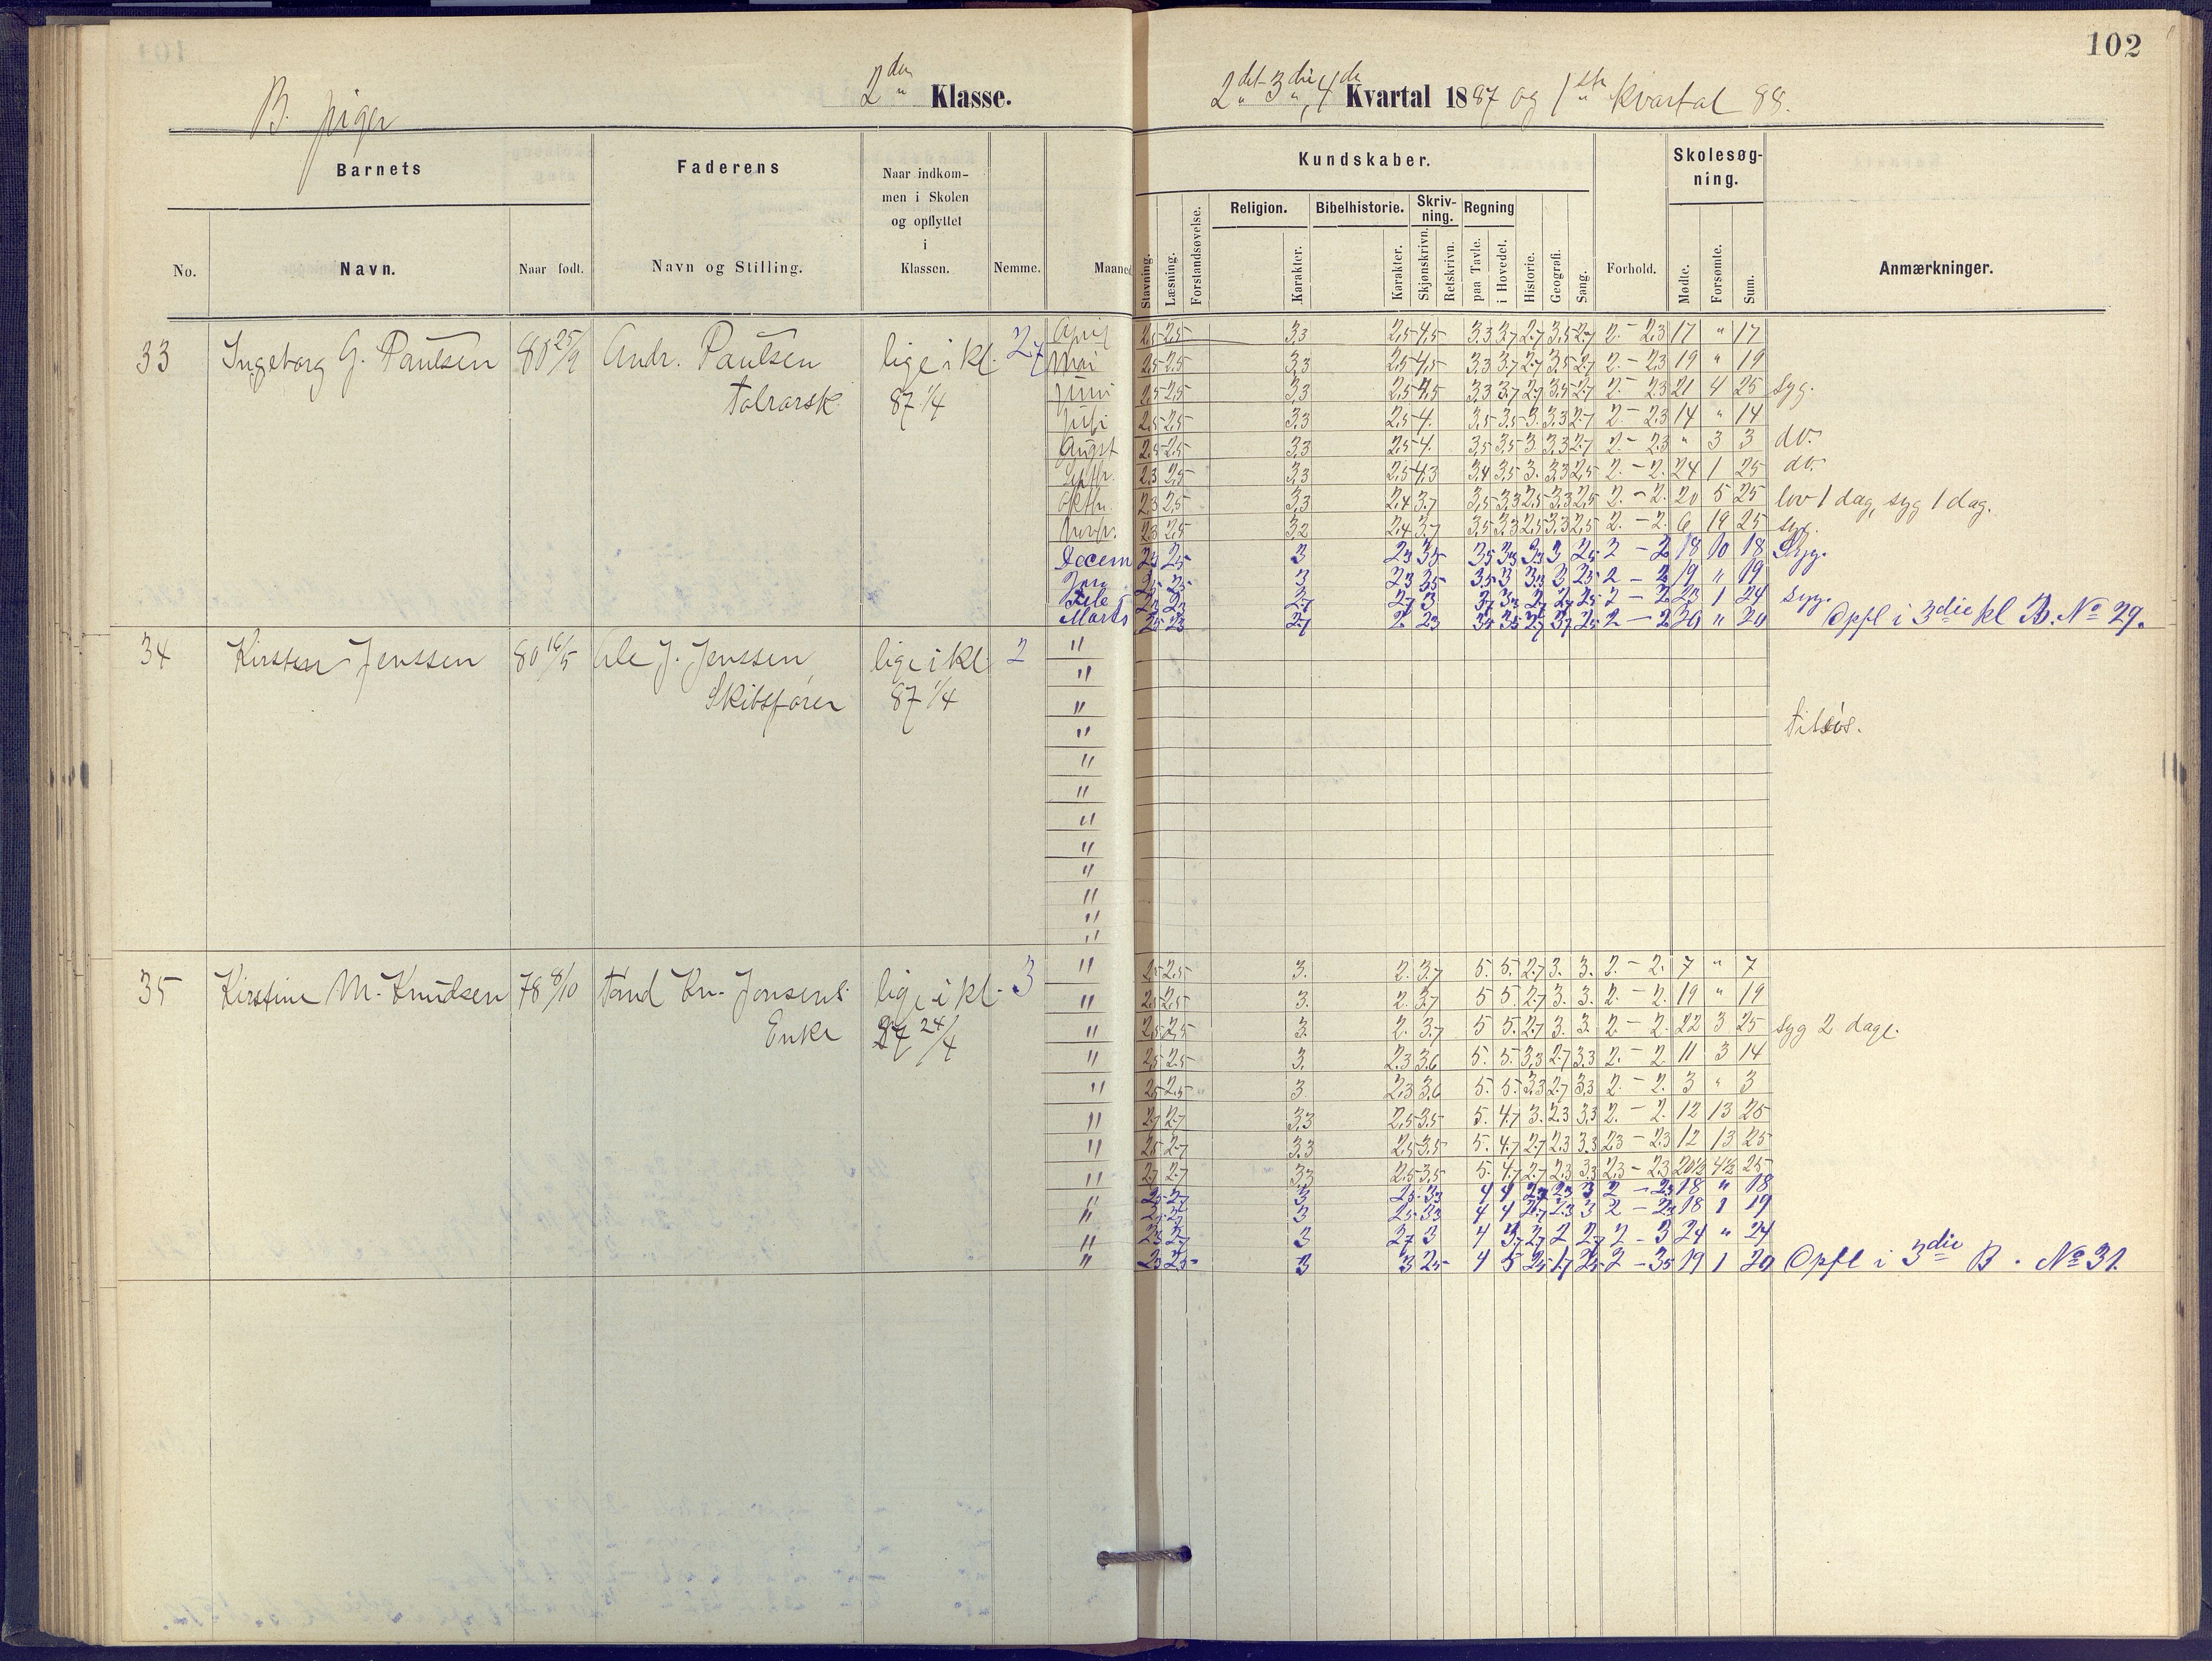 102
B. piger
2den Klasse.
2det 3die, 4de Kvartal 1887 og 1ste kvartal 88.
Barnets
Faderens
Naar indkommen i Skolen og opflyttet i Klassen.
Kundskaber.
Skolesøgning.
Religion. Bibelhistorie. Skrivning. Regning
No. Navn. Naar født. Navn og Stilling. Nemme. Maaned
Stavning. Læsning. Forstandsøvelse. Karakter. Karakter. Skjønskrivn. Retskrivn. paa Tavle. i Hovedet. Historie. Geografi. Sang. Forhold. Mødte. Forsømte. Sum. Anmærkninger.
33 Ingeborg G. Paulsen 80 25/9 Andr. Paulsen lige i kl. 2,7
87 1/4
April 2,5 2,5 3,3 2,5 4,5 3,3 3,7 2,7 3,5 2,7 2. - 2,3 17 " 17
Mai 2,5 2,5 3,3 2,5 4,5 3,3 3,7 2,7 3,5 2,7 2 - 2,3 19 " 19
Juni 2,5 2,5 3,3 2,5 4,5 3,3 3,7 2,7 3,5 2,7 2. - 2,3 21 4 25 syg.
Juli 2,5 2,5 3,3 2,5 4. 3,5 3,5 3. 3,3 2,7 2 - 2,3 14 " 14
August 2,5 2,5 3,3 2,5 4. 3,5 3,5 3 3,3 2,7 2 - 2,3 " 3 3 do.
Septbr. 2,3 2,5 3,3 2,5 4,3 3,4 3,5 3. 3,3 2,5 2. - 2. 24 1 25 do.
Oktbr. 2,3 2,5 3,3 2,4 3,7 3,5 3,3 2,5 3,3 2,5 2. - 2. 20 5 25 lov 1 dag, syg 1 dag.
Novbr. 2,3 2,5 3,2 2,4 3,7 3,5 3,3 2,5 3,3 2,5 2. - 2. 6 19 25 syg.
Decem 3 2 - 2 18 10 18 Syg.
Jan 3 2 - 2 19 " 19
1 24 syg.
Marts 2 - 2 20 " 20 Opfl i 3die kl B. No 29.
34 Kirsten Jenssen 80 16/5 Ole J. Jenssen lige i Kl 2
Skibsfører 87 1/4
tilsøs.
35 Kirstine M. Knudsen 78 8/10 Kn. Jonsens lige i kl. 3
Enke 87 24/4
" 2,5 2,5 3. 2. 3,7 5. 5. 2,7 3. 3. 2. - 2. 7 " 7
" 2,5 2,5 3. 2. 3,7 5 5. 2,7 3. 3. 2. - 2. 19 " 19
" 2,5 2,5 3. 2. 3,7 5 5. 2,7 3. 3. 2 - 2. 22 3 25 syg 2 dage.
" 2,5 2,5 3. 2,3 3,6 5. 5. 3,3 2,7 3,3 2. - 2 11 3 14
" 2,5 2,5 3 2,3 3,6 5. 5. 3,3 2,7 3,3 2 - 2. 3 " 3
" 2,7 2,7 3,3 2,5 3,5 5. 4,7 3. 2,3 3,3 2. - 2. 12 13 25
" 2,5 2,7 3,3 2,5 3,5 5. 4,7 2,7 2,3 3,3 2,3 - 2,3 12 13 25
" 2,7 2,7 3,3 2,5 3,5 5. 4,7 2,7 2,3 3,3 2,3 - 2,3 20½ 4½ 25
" 3 4 4 3 2 18 " 18
" 3 4 4 2,7 2,3 3 2 18 1 19
" 3 2,7 3 4 2 2 - 3 24 " 24
" 2,3 3 3 2,5 4 5 2,5 1,7 2,5 2 - 3,5 19 1 20 Opfl i 3die B. No 31.